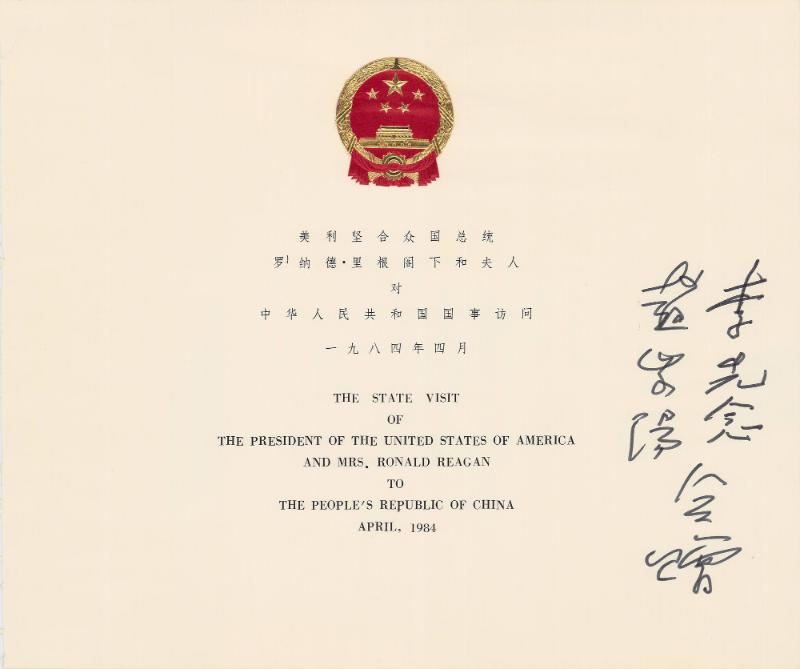 美利坚合众国总统
罗纳德·里根阁下和夫人
对
中华人民共和国国事访问
一九八四年四月
THE STATE VISIT
OF
THE PRESIDENT OF THE UNITED STATES OF AMERICA
AND MRS. RONALD REAGAN
TO
THE PEOPLE'S REPUBLIC OF CHINA
APRIL, 1984
李先念
趙紫陽